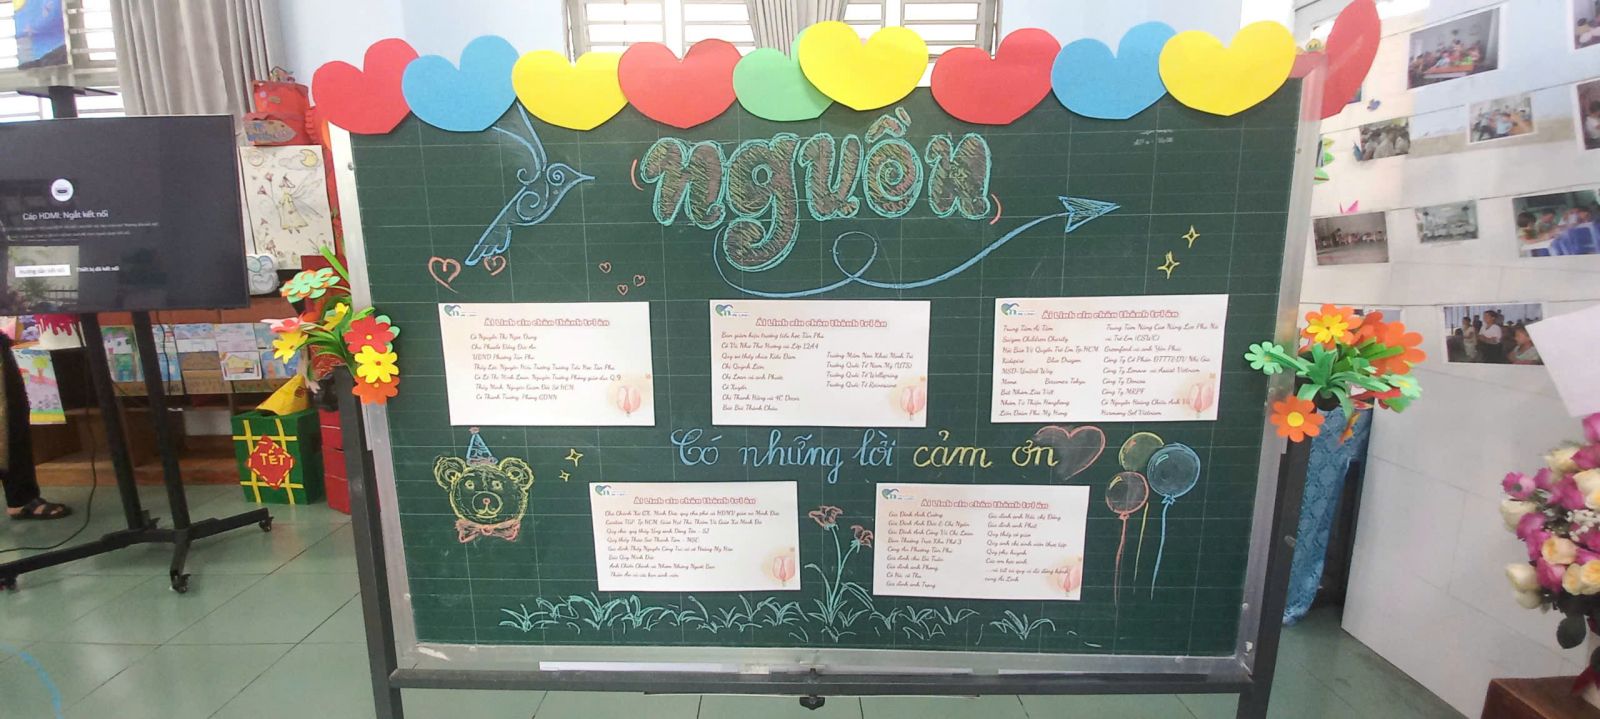 Cáp HDMI: Ngắt kết nối
Hướng dẫn kết nối
Thiết bị đã kết nối
TẾT
nguồn
Ái Linh xin chân thành tri ân
Cô Nguyễn Thị Ngọc Dung
Cha Phaolô Đông Đức An
UBND Phường Tân Phú
Thầy Minh
Cô Thành Trường, Phòng GDNN
Ái Linh xin chân thành tri ân
Ban giám hiệu trường tiểu học Tân Phú
Cô Vũ Như Thu Hương và Lớp 12A4
Quý sơ thầy chùa Kiều Đàm
Chị Quỳnh Liên
Chị Loan và anh Phước
Cô Xuyến
Chị Thanh Hằng và 4C Decor
Bác Bùi Thành Châu
Trường Mầm Non Khai Minh Trí
Trường Quốc Tế Nam Mỹ (UTS)
Trường Quốc Tế Wellspring
Trường Quốc Tế Renaissance
Ái Linh xin chân thành tri ân
Trung Tâm Ái Tâm
Saigon Children Charity
Hội Bảo Vệ Quyền Trẻ Em Tp.HCM
Kidspire Blue Dragon
MSD-United Way
Bút Nhóm Lửa Việt
Nhóm Từ Thiện Hongkong
Liên Đoàn Phú Mỹ Hưng
Trung Tâm Nâng Cao Năng Lực Phụ Nữ
và Trẻ Em (CSWC)
Greenfood và anh Yên Phúc
Công Ty Cổ Phần DTTT&DV Nhà Gia
Công Ty Lomaro và Assist Vietnam
Công Ty Densso
Công Ty MKPF
Cô Nguyễn Hoàng Châu Anh Vũ
Harmony Sol Vietnam
Có những lời cảm ơn
Ái Linh xin chân thành tri ân
Cha Chánh Xứ GX. Minh Đức quý cha phó và HĐMV giáo xứ Minh Đức
Caritas TGP. Tp.HCM, Giáo Hạt Thủ Thiêm Và Giáo Xứ Minh Đức
Quý cha, quý thầy Dòng Tên - SJ
Quý thầy Thừa Sai Thánh Tâm - MSC
Gia đình Thầy Nguyễn Công Trí và cô Hoàng Mỹ Hảo
Bác Quý Minh Đức
Anh Chiến Chinh và Nhóm Những Người Bạn
Thiên An và các bạn sinh viên
Ái Linh xin chân thành tri ân
Gia Đình Anh Cường
Gia Đình Anh Đức & Chị Ngân
Gia Đình Anh Công Và Chị Loan
Ban Thường Trực Khu Phố 3
Công An Phường Tân Phú
Gia đình chú Bá Tuấn
Gia đình anh Phong
Cô Hà cô Thu
Gia đình anh Trọng
Gia đình anh Hảo chị Đông
Gia đình anh Phát
Quý thầy cô giáo
Quý anh chị sinh viên thực tập
Quý phụ huynh
Các em học sinh
...và tất cả quý vị đã đồng hành
cùng Ái Linh